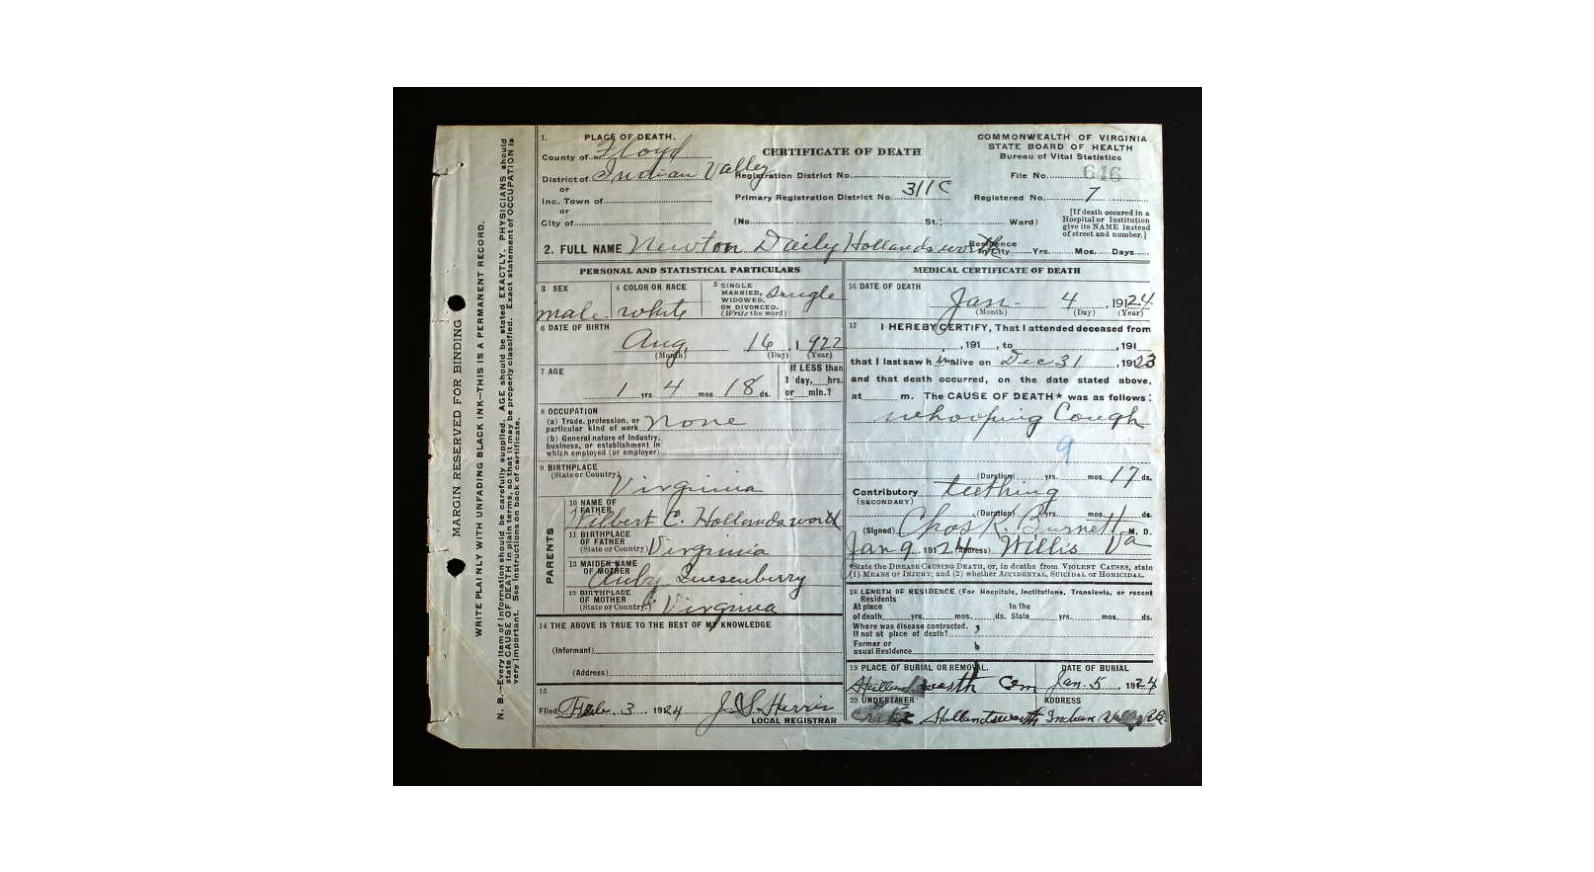 MARGIN RESERVED FOR BINDING
WRITE PLAINLY WITH UNFADING BLACK INK—THIS IS A PERMANENT RECORD.
N. B.—Every item of information should be carefully supplied. AGE should be stated EXACTLY. PHYSICIANS should
state CAUSE OF DEATH in plain terms, so that it may be properly classified. Exact statement of OCCUPATION is
very important. See instructions on back of certificate.
1. PLACE OF DEATH.
County of Floyd
District of Indian Valley
or
Inc. Town of
or
City of
CERTIFICATE OF DEATH
Registration District No.
Primary Registration District No. 311C
(No. St.; Ward)
COMMONWEALTH OF VIRGINIA
STATE BOARD OF HEALTH
Bureau of Vital Statistics
File No. 646
Registered No. 7
[If death occured in a
Hospital or Institution
give its NAME instead
of street and number.]
2. FULL NAME Newton Daily Hollandsworth
Residence
In City Yrs. Mos. Days
PERSONAL AND STATISTICAL PARTICULARS
3 SEX
male
4 COLOR OR RACE
white
5 SINGLE
MARRIED,
WIDOWED,
OR DIVORCED.
(Write the word)
Single
6 DATE OF BIRTH
Aug 16, 1922
(Month) (Day) (Year)
7 AGE
1 yrs 4 mos 18 ds.
If LESS than
1 day, hrs.
or min.?
8 OCCUPATION
(a) Trade, profession, or
particular kind of work None
(b) General nature of industry,
business, or establishment in
which employed (or employer)
9 BIRTHPLACE
(State or Country)
Virginia
PARENTS
10 NAME OF
FATHER
Wilbert C. Hollandsworth
11 BIRTHPLACE
OF FATHER
(State or Country) Virginia
12 MAIDEN NAME
OF MOTHER
Quesenberry
13 BIRTHPLACE
OF MOTHER
(State or Country) Virginia
14 THE ABOVE IS TRUE TO THE BEST OF MY KNOWLEDGE
(Informant)
(Address)
15
Filed Feb. 3 1924 J. S. Harris
LOCAL REGISTRAR
MEDICAL CERTIFICATE OF DEATH
16 DATE OF DEATH
Jan - 4, 1924
(Month) (Day) (Year)
17 I HEREBY CERTIFY, That I attended deceased from
, 191 , to , 191
that I last saw h im alive on Dec 31, 1923
and that death occurred, on the date stated above,
at m. The CAUSE OF DEATH* was as follows:
whooping Cough
9
(Duration) yrs. mos. 17 ds.
Contributory teething
(SECONDARY)
(Duration) yrs. mos. ds.
(Signed) Chas R. Burnett M. D.
Jan 9 1924 (Address) Willis Va
*State the DISEASE CAUSING DEATH, or, in deaths from VIOLENT CAUSES, state
(1) MEANS OF INJURY; and (2) whether ACCIDENTAL, SUICIDAL or HOMICIDAL.
18 LENGTH OF RESIDENCE (For Hospitals, Institutions, Transients, or recent
Residents
At place In the
of death yrs. mos. ds. State yrs. mos. ds.
Where was disease contracted,
If not at place of death?
Former or
usual Residence
19 PLACE OF BURIAL OR REMOVAL.
Hollandsworth Cem
DATE OF BURIAL
Jan. 5 1924
20 UNDERTAKER
Hollandsworth
ADDRESS
Indian Valley Va.